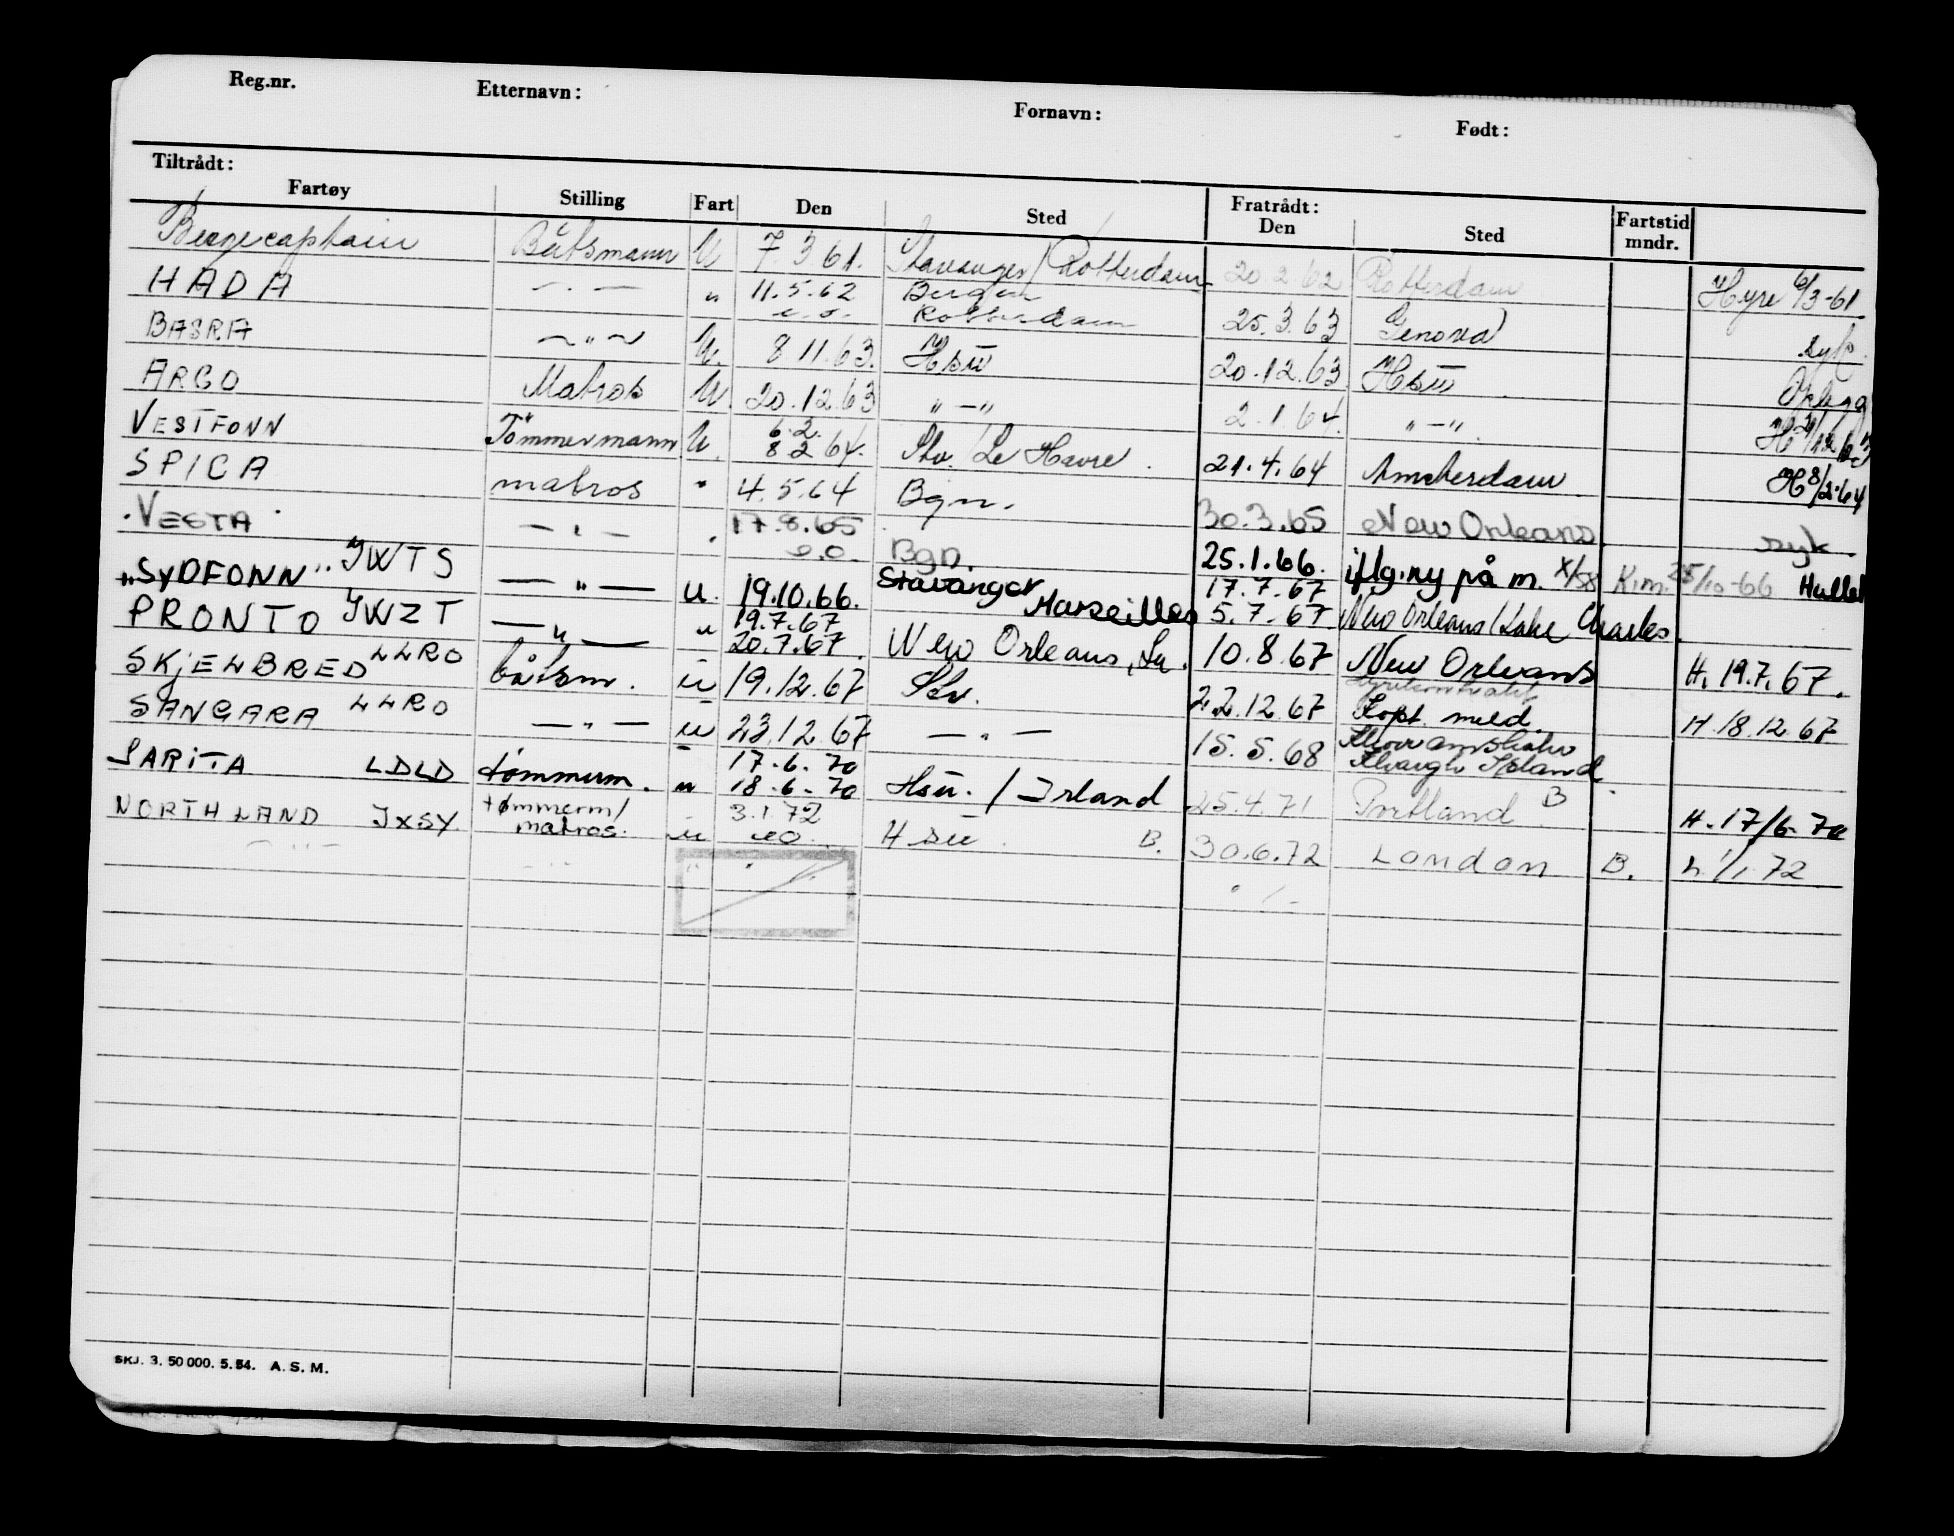 Reg.nr. Etternavn: Fornavn: Født:
Tiltrådt: Fratrådt:
Fartøy Stilling Fart Den Sted Den Sted Fartstid mndr.
Bergecaptain Båtsmann U 7.3.61. Stavanger/Rotterdam 20.2.62 Rotterdam Hyre 6/3-61
HADA — . — " 11.5.62 Bergen
e.o. Rotterdam 25.3.63 Genova syk.
BASRA ~ " ~ U. 8.11.63. Hsu 20.12.63 Hsu Oplegg
ARGO Matros U. 20.12.63 " — " 2.1.64. " — "
VESTFONN Tömmermann U. 6.2.
8.2.64. Stv./Le Havre. 21.4.64 Amsterdam H 8/2-64
SPICA matros " 4.5.64 Bgn. 30.3.65 New Orleans syk.
VESTA — " — " 17.8.65
e.o. Bgn. 25.1.66. iflg. ny på m. X/58 K.m. 25/10-66
"SYDFONN" JWTS — " — U. 19.10.66. Stavanger Marseilles 17.7.67
5.7.67 New Orleans/Lake Charles.
PRONTO JWZT — " — " 19.7.67
20.7.67. New Orleans, La. 10.8.67 New Orleans H. 19.7.67.
SKJELBRED LLRO båtsm. u 19.12.67 Stv. 22.12.67 Kopt. meld. H 18.12.67
SANGARA LLRO — " — u 23.12.67 — " — 15.5.68
SARITA LDLD tømmerm. " 17.6.70
18.6.70 Hsu. / Irland 25.4.71 Portland B H. 17/6-70
NORTHLAND JXSY. tømmerm/
matros. u 3.1.72
eo Hsu. B. 30.6.72 London B. h. 1/1.72
— " — — " — " "
SKJ. 3. 50 000. 5. 54. A. S. M.